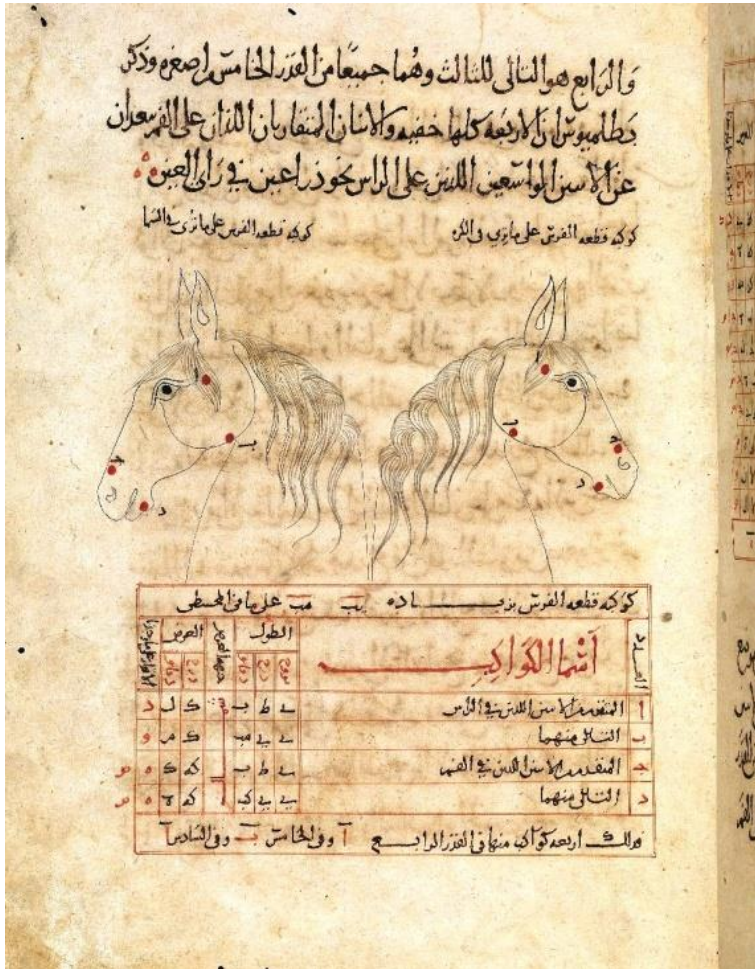 والرابع هو التالى للثالث وهما جميعًا من القدر الخامس واصغره وذكر
بطلميوس ان الاربعه كلها خفيه والاثنان المتقاربان اللذان على الفم يبعدان
عن الاثنين الواسعين اللذين على الراس نحو ذراعين فى راى العين
كوكبه قطعه الفرس على ما ترى فى الكره
كوكبه قطعه الفرس على ما ترى فى السما
ا
ب
د
ا
د
كوكبه قطعه الفرس بزيـــاده يب مب على ما فى المجسطى
العدد اسما الكواكب الطول العرض
بروج درج دقايق درج دقايق
ا المتقدم من الاثنين اللذين فى الراس ى ط ب ك ل د
ب التالى منهما ى ى مب ك م و
ج المتقدم من الاثنين اللذين فى الفم ى ط ب كه ك ه
د التالى منهما ى ى كب كه ه ه
فذلك اربعه كواكب منها فى القدر الرابع ا وفى الخامس ب وفى السادس ا